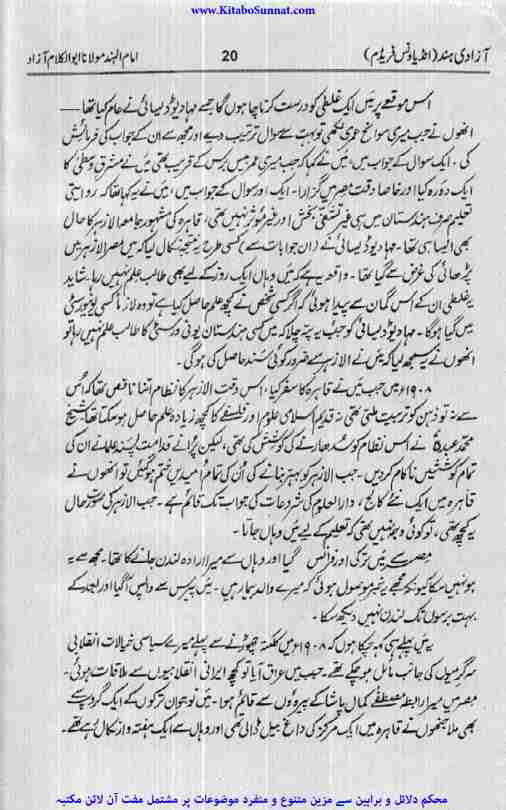 www.KitaboSunnat.com
آزادی ہند (انڈیا ونس فریڈم) 20 امام الہند مولانا ابوالکلام آزاد
اس موقعے پر میں ایک غلطی کو درست کرنا چاہوں گا جسے مہادیو ڈیسائی نے عام کیا تھا —
انھوں نے جب میری سوانح عمری لکھی تو بہت سے سوال ترتیب دیے اور مجھ سے ان کے جواب کی فرمائش
کی۔ ایک سوال کے جواب میں، میں نے کہا کہ جب میری عمر بیس برس کے قریب تھی میں نے مشرق وسطیٰ کا
ایک دورہ کیا اور خاصا وقت مصر میں گزارا۔ ایک اور سوال کے جواب میں، میں نے یہ کہا تھا کہ روایتی
تعلیم صرف ہندستان میں ہی غیر تشفی بخش اور غیر مؤثر نہیں تھی، قاہرہ کی مشہور جامعہ الازہر کا حال
بھی ایسا ہی تھا۔ مہادیو ڈیسائی نے (ان جوابات سے) کسی طرح یہ نتیجہ نکال لیا کہ میں مصر الازہر میں
پڑھائی کی غرض سے گیا تھا۔ واقعہ یہ ہے کہ میں وہاں ایک روز کے لیے بھی طالب علم نہیں رہا۔ شاید
یہ غلطی ان کے اس گمان سے پیدا ہوئی کہ اگر کسی شخص نے کچھ علم حاصل کیا ہے تو وہ لازماً کسی یونیورسٹی
میں گیا ہوگا۔ مہادیو ڈیسائی کو جب یہ پتہ چلا کہ میں کسی ہندستانی یونی ورسٹی کا طالب علم نہیں رہا تو
انھوں نے یہ سمجھ لیا کہ میں نے الازہر سے ضرور کوئی سند حاصل کی ہوگی۔
۱۹۰۸ء میں جب میں نے قاہرہ کا سفر کیا، اس وقت الازہر کا نظام اتنا ناقص تھا کہ اس
سے نہ تو ذہن کو تربیت ملتی تھی نہ قدیم اسلامی علوم اور فلسفے کا کچھ زیادہ علم حاصل ہو سکتا تھا شیخ
محمد عبدہٗ نے اس نظام کو سدھارنے کی کوشش کی تھی، لیکن پرانے قدامت پسند علما نے ان کی
تمام کوششیں ناکام کر دیں۔ جب الازہر کو بہتر بنانے کی اُن کی تمام امیدیں ختم ہو گئیں تو انھوں نے
قاہرہ میں ایک نئے کالج، دارالعلوم کی شروعات کی جو اب تک قائم ہے۔ جب الازہر کی صورت حال
یہ کچھ تھی، تو کوئی وجہ نہیں تھی کہ تعلیم کے لیے میں وہاں جاتا۔
مصر سے میں ترکی اور فرانس گیا اور وہاں سے میرا ارادہ لندن جانے کا تھا۔ مجھ سے یہ
ہو نہیں سکا کیونکہ مجھے یہ خبر موصول ہوئی کہ میرے والد بیمار ہیں۔ میں پیرس سے واپس آ گیا اور بعد کے
بہت برسوں تک لندن نہیں دیکھ سکا۔
یہ میں پہلے ہی کہہ چکا ہوں کہ ۱۹۰۸ء میں کلکتہ چھوڑنے سے پہلے میرے سیاسی خیالات انقلابی
سرگرمیوں کی جانب مائل ہو چکے تھے۔ جب میں عراق آیا تو کچھ ایرانی انقلابیوں سے ملاقات ہوئی۔
مصر میں میرا رابطہ مصطفےٰ کمال پاشا کے پیروؤں سے قائم ہوا۔ میں نوجوان ترکوں کے ایک گروپ سے
بھی ملا جنھوں نے قاہرہ میں ایک مرکز کی داغ بیل ڈالی تھی اور وہاں سے ایک ہفتہ وار نکال رہے تھے۔
محکم دلائل و براہین سے مزین متنوع و منفرد موضوعات پر مشتمل مفت آن لائن مکتبہ